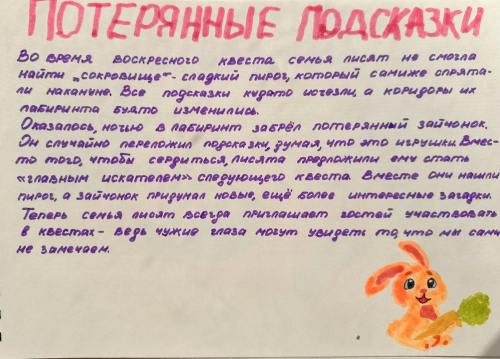 ПОТЕРЯННЫЕ ПОДСКАЗКИ
Во время воскресного квеста семья лисят не смогла
найти „сокровище"- сладкий пирог, который сами же спрята-
ли накануне. Все подсказки куда-то исчезли, а коридоры их
лабиринта будто изменились.
Оказалось, ночью в лабиринт забрёл потерянный зайчонок.
Он случайно переложил подсказки, думая, что это игрушки. Вмес-
то того, чтобы сердиться, лисята предложили ему стать
«главным искателем» следующего квеста. Вместе они нашли
пирог, а зайчонок придумал новые, ещё более интересные загадки.
Теперь семья лисят всегда приглашает гостей участвовать
в квестах - ведь чужие глаза могут увидеть то, что мы сами
не замечаем.